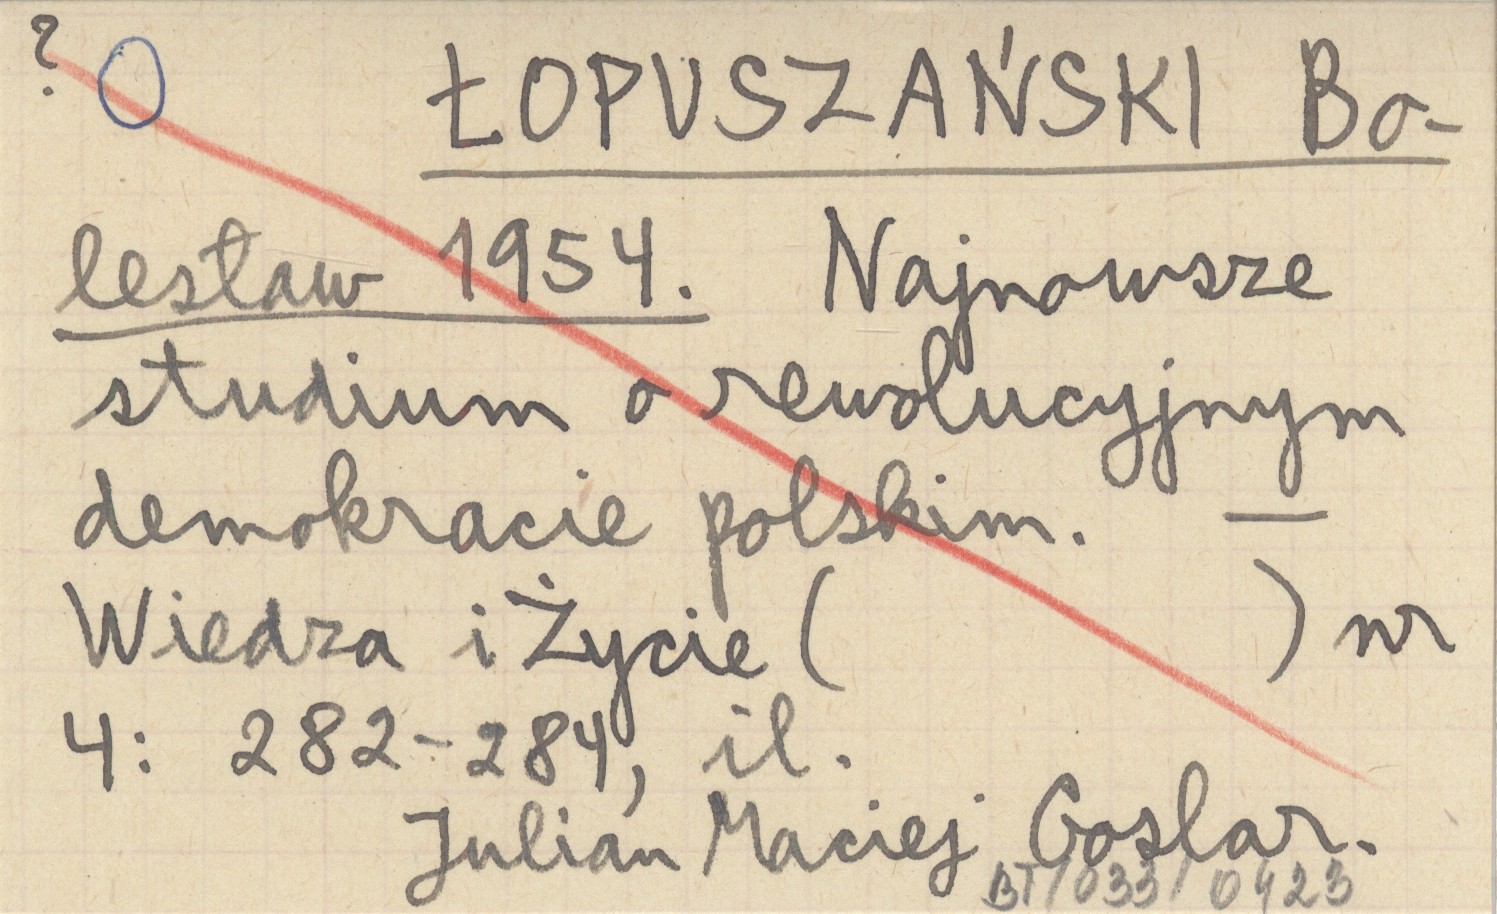 ?
ŁOPUSZAŃSKI Bo-
lesław 1954. Najnowsze
studium o rewolucyjnym
demokracie polskim. —
Wiedza i Życie ( ) nr
4: 282-284, il.
Julian Maciej Goslar.
BT/033/0423